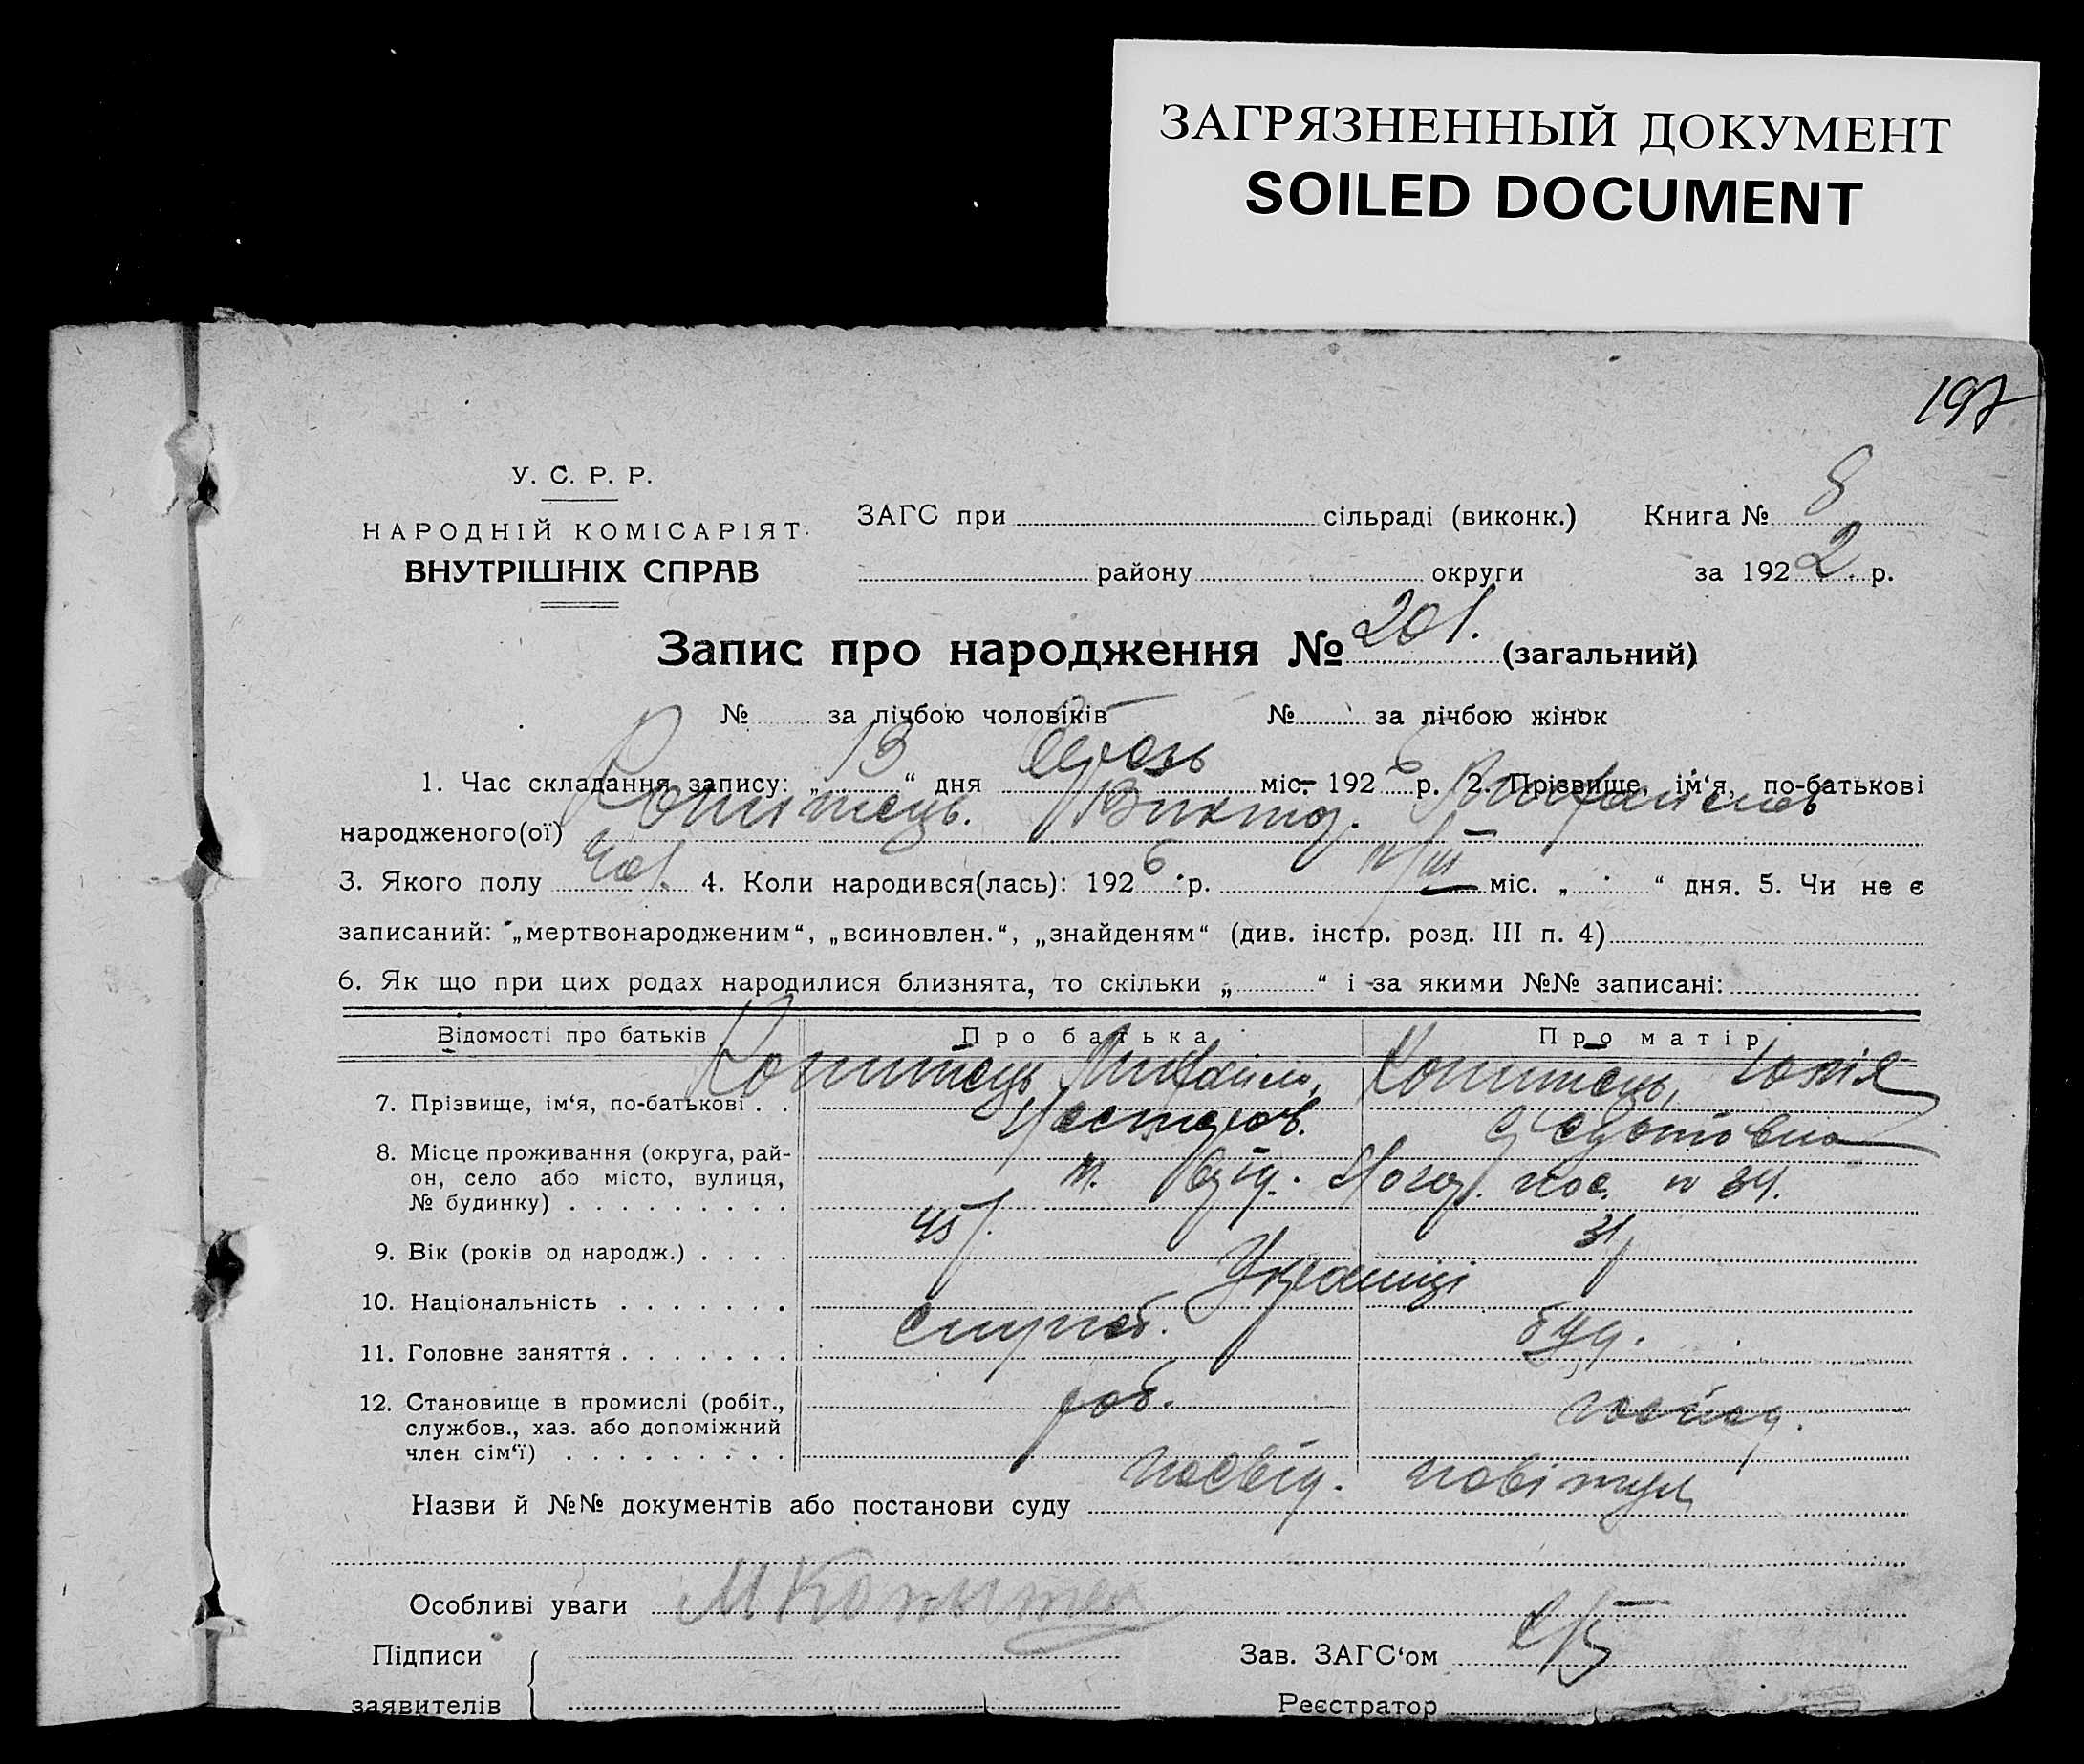 ЗАГРЯЗНЕННЫЙ ДОКУМЕНТ
SOILED DOCUMENT
197
У. С. Р. Р.
НАРОДНІЙ КОМІСАРІЯТ
ВНУТРІШНІХ СПРАВ
ЗАГС при сільраді (виконк.) Книга № 8
району округи за 192 2 р.
Запис про народження № 201. (загальний)
№ за лічбою чоловіків № за лічбою жінок
1. Час складання запису: „ 13 “ дня міс. 192 6 р. 2. Прізвище, ім‘я, по-батькові
народженого(ої) Копитець. Виктор.
3. Якого полу Чол. 4. Коли народився(лась): 192 6 р. міс. „ “ дня. 5. Чи не є
записаний: „мертвонародженим“, „всиновлен.“, „знайденям“ (див. інстр. розд. III п. 4)
6. Як що при цих родах народилися близнята, то скільки „ “ і за якими №№ записані:
Відомості про батьків Про батька Про матір
7. Прізвище, ім‘я, по-батькові Копитець Михайло, Нестеров. Копитець, Юлія
8. Місце проживання (округа, рай-
он, село або місто, вулиця,
№ будинку) пос. № 34.
9. Вік (років од народж.) 45 31
10. Національність Українці
11. Головне заняття
12. Становище в промислі (робіт., роб.
службов., хаз. або допоміжний
член сім‘ї)
Назви й №№ документів або постанови суду посвід.
Особливі уваги М Копитец
Підписи
заявителів
Зав. ЗАГС‘ом
Реєстратор